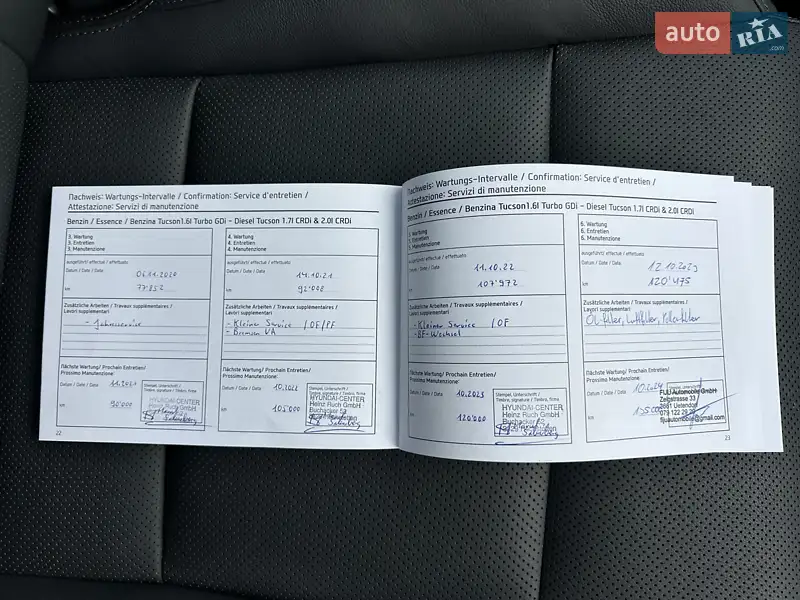 auto RIA .com
Nachweis: Wartungs-Intervalle / Confirmation: Service d'entretien /
Attestazione: Servizi di manutenzione
Benzin / Essence / Benzina Tucson1.6l Turbo GDi – Diesel Tucson 1.7l CRDi & 2.0l CRDi
3. Wartung
3. Entretien
3. Manutenzione
ausgeführt / effectué / effettuato:
Datum / Date / Data : 06.11.2020
km 77'852
Zusätzliche Arbeiten / Travaux supplémentaires /
Lavori supplementari
- Jahresservice
Nächste Wartung/ Prochain Entretien/
Prossimo Manutenzione:
Datum / Date / Data : 11.2021
km 90'000
Stempel, Unterschrift /
Timbre, signature / Timbro, firma
HYUNDAI-CENTER
Heinz Ruch GmbH
22
4. Wartung
4. Entretien
4. Manutenzione
ausgeführt / effectué / effettuato:
Datum / Date / Data : 14.10.21
km 92'008
Zusätzliche Arbeiten / Travaux supplémentaires /
Lavori supplementari
- Kleiner Service / OF/PF
- Bremsen VA
Nächste Wartung/ Prochain Entretien/
Prossimo Manutenzione:
Datum / Date / Data : 10.2022
km 105'000
Stempel, Unterschrift /
Timbre, signature / Timbro, firma
HYUNDAI-CENTER
Heinz Ruch GmbH
Buchacker 52
Nachweis: Wartungs-Intervalle / Confirmation: Service d'entretien /
Attestazione: Servizi di manutenzione
Benzin / Essence / Benzina Tucson1.6l Turbo GDi – Diesel Tucson 1.7l CRDi & 2.0l CRDi
5. Wartung
5. Entretien
5. Manutenzione
ausgeführt / effectué / effettuato:
Datum / Date / Data : 11.10.22
km 107'972
Zusätzliche Arbeiten / Travaux supplémentaires /
Lavori supplementari
- Kleiner Service / OF
- BF-Wechsel
Nächste Wartung/ Prochain Entretien/
Prossimo Manutenzione:
Datum / Date / Data : 10.2023
km 120'000
Stempel, Unterschrift /
Timbre, signature / Timbro, firma
HYUNDAI-CENTER
Heinz Ruch GmbH
Buchacker 52
6. Wartung
6. Entretien
6. Manutenzione
ausgeführt / effectué / effettuato:
Datum / Date / Data : 12.10.2023
km 120'475
Zusätzliche Arbeiten / Travaux supplémentaires /
Lavori supplementari
Öl-filter, Luftfilter, Pollenfilter
Nächste Wartung/ Prochain Entretien/
Prossimo Manutenzione:
Datum / Date / Data : 10.2024
km 135'000
FUU Automobile GmbH
Zelgstrasse 33
3661 Uetendorf
079 122 29
fjuautomobile@gmail.com
23